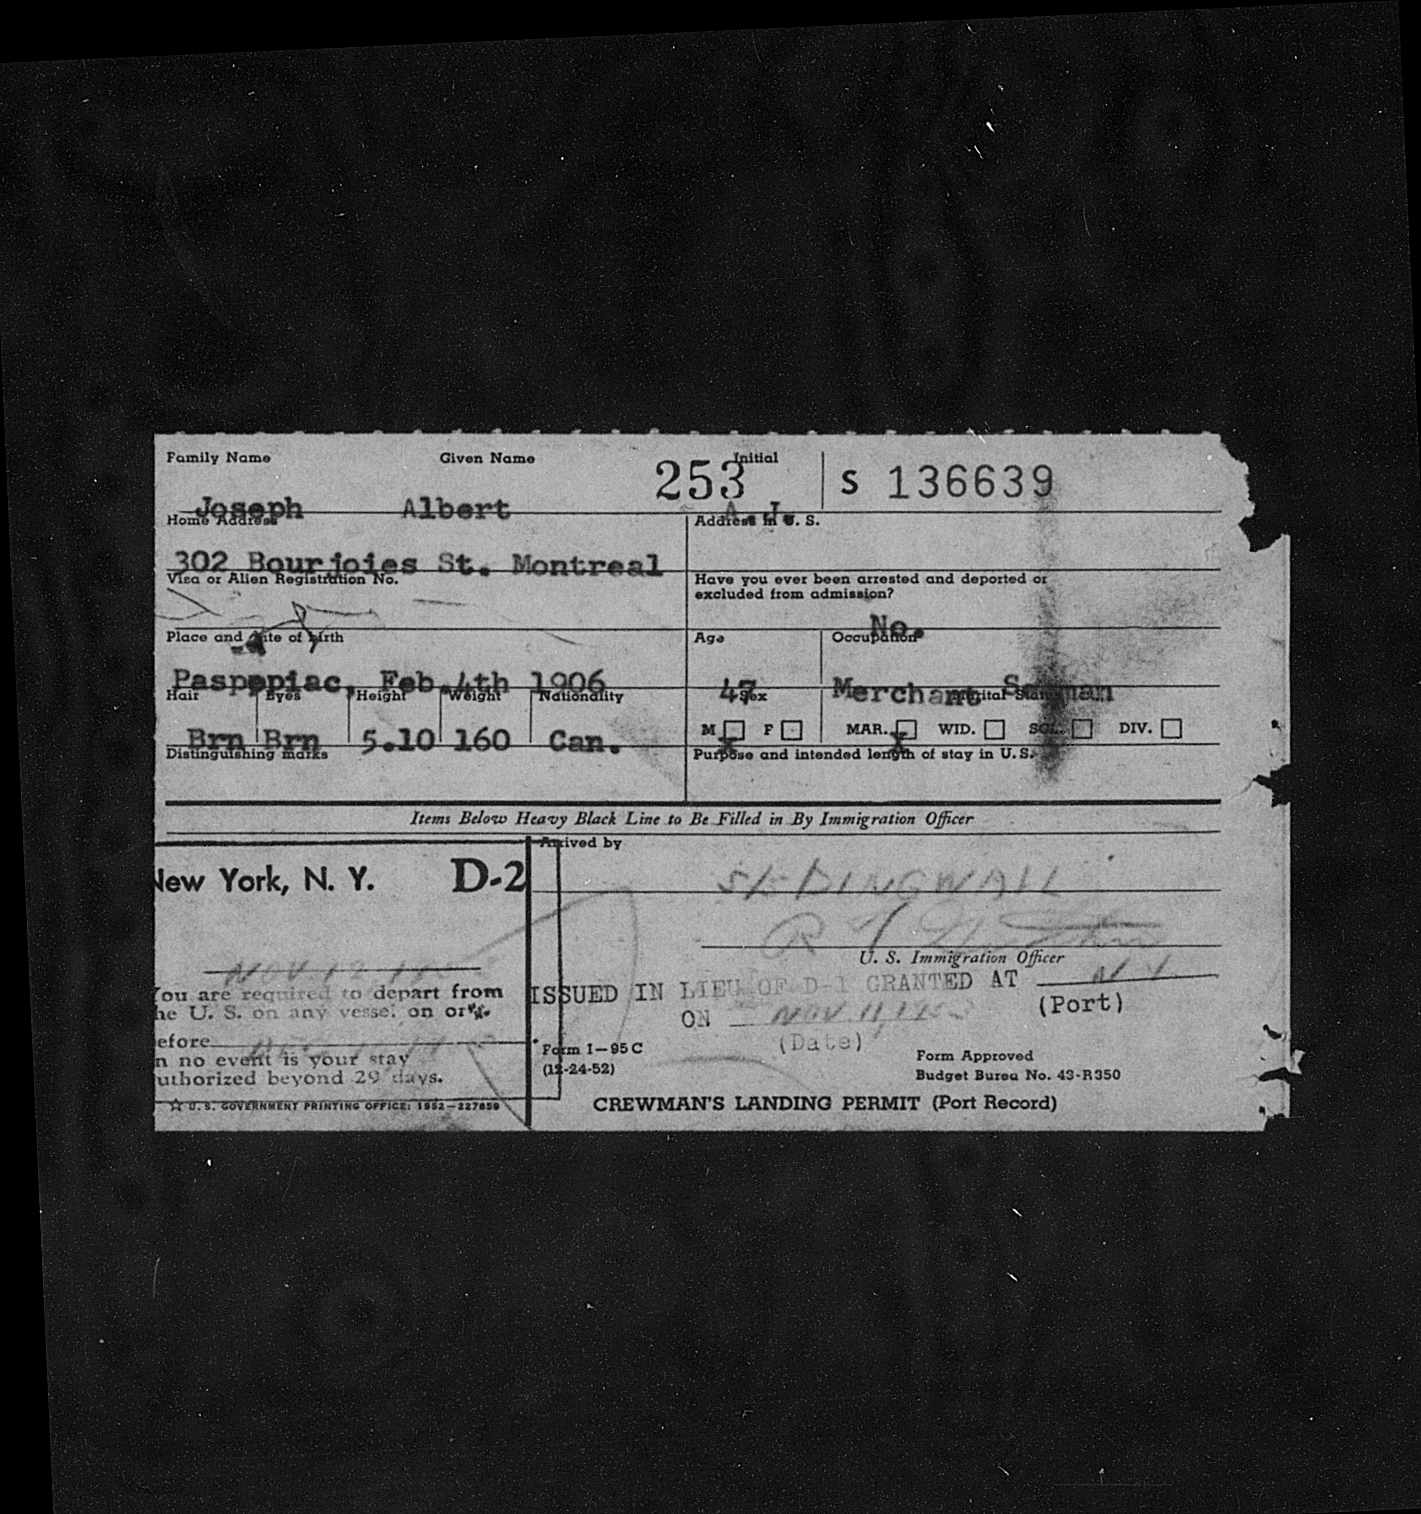 Family Name Given Name 253 Initial S 136639
Joseph Albert A. J.
Home Address Address in U. S.
302 Bourjoies St. Montreal
Visa or Alien Registration No. Have you ever been arrested and deported or
excluded from admission?
No.
Place and date of birth Age Occupation
Paspepiac, Feb.4th 1906 47 Merchant Seaman
Hair Eyes Height Weight Nationality Sex Marital Status
Brn Brn 5.10 160 Can. M X F MAR. X WID. SGL. DIV.
Distinguishing marks Purpose and intended length of stay in U. S.
Items Below Heavy Black Line to Be Filled in By Immigration Officer
Arrived by
New York, N. Y. D-2 S/S DINGWALL
U. S. Immigration Officer
NOV 12
You are required to depart from ISSUED IN LIEU OF D-1 GRANTED AT N Y
the U. S. on any vessel on or (Port)
ON NOV 11, 1953
before (Date)
in no event is your stay Form I-95 C Form Approved
authorized beyond 29 days. (12-24-52) Budget Bureau No. 43-R350
☆ U. S. GOVERNMENT PRINTING OFFICE: 1952-227859 CREWMAN'S LANDING PERMIT (Port Record)